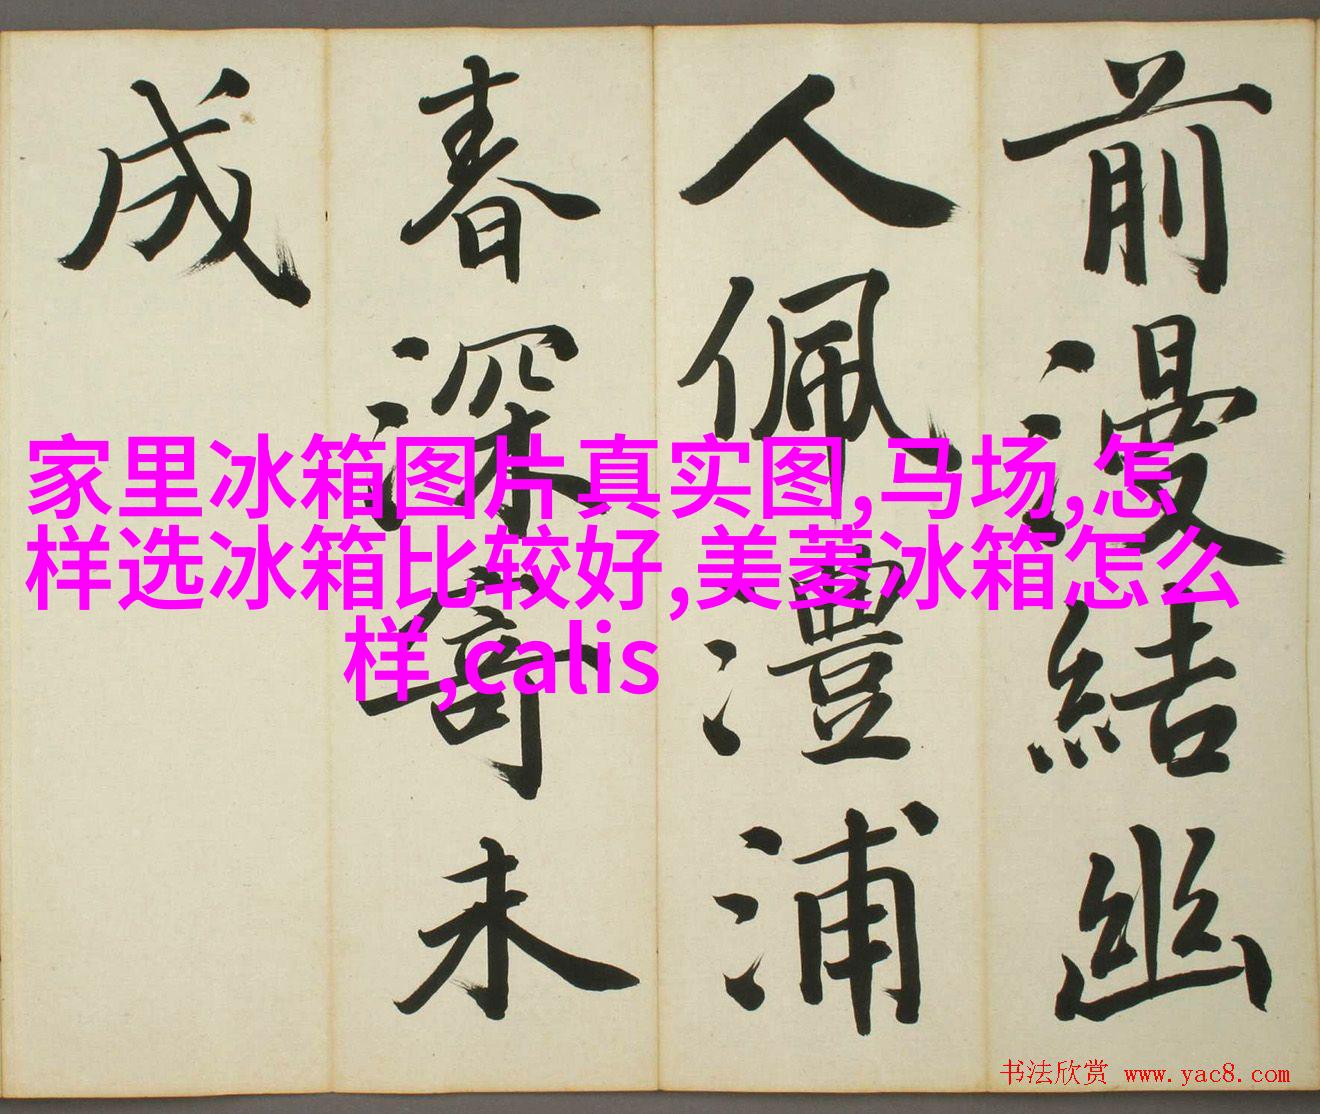 前漫結幽
人佩澧浦
春深寄未
成
家里冰箱图片真实图,马场,怎
样选冰箱比较好,美菱冰箱怎么
样,calis
书法欣赏 www.yac8.com